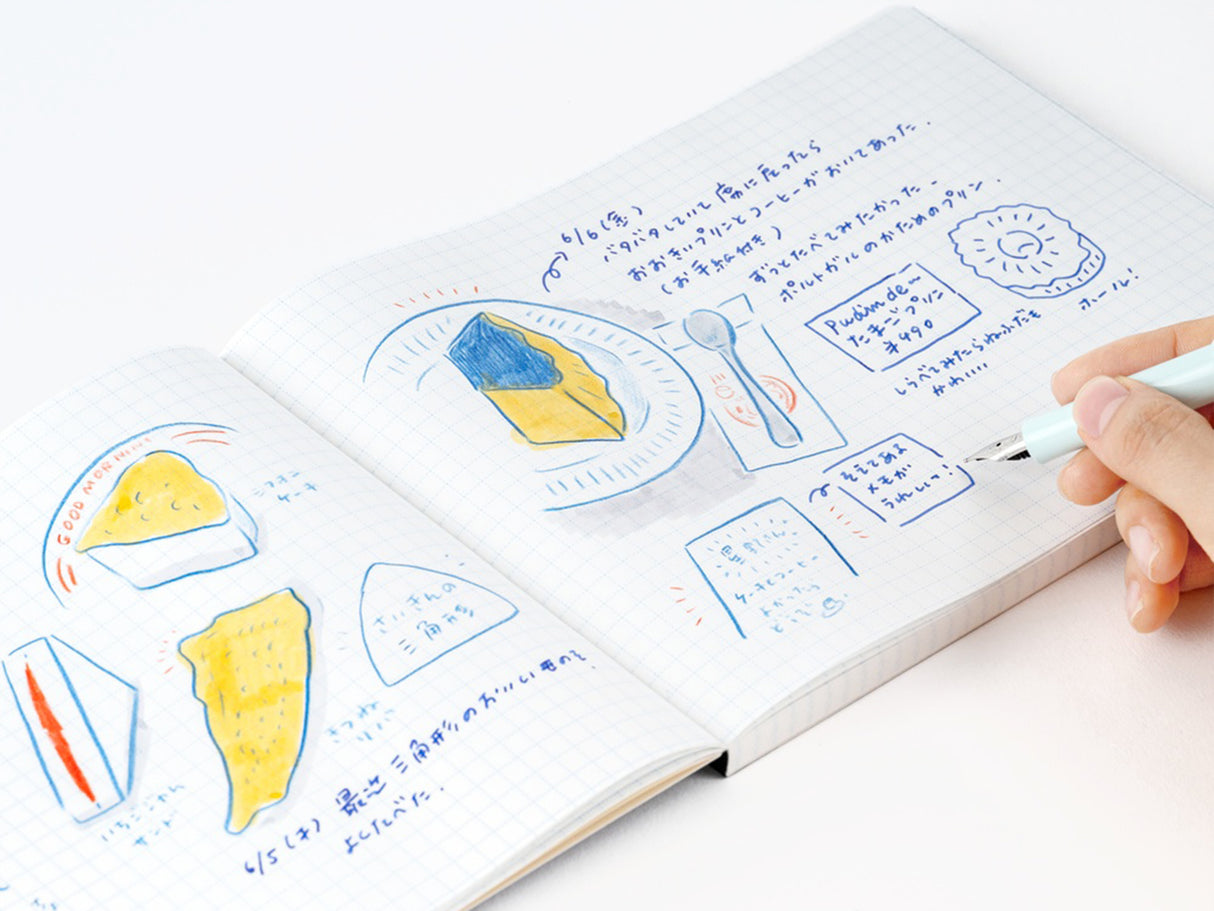 GOOD MORNING
ケーキ
さいきんの
三角形
いちごさん
サンド
6/5(木) 最近 三角形のおいしいものを
よくたべた.
6/6(金)
バタバタしていて 席に戻ったら
おおきいプリンとコーヒーがおいてあった.
(お手紙付き)
ずっとたべてみたかった.
ポルトガルのかためのプリン.
Pudim de~
たまごプリン
¥490
ホール!
しらべてみたらねふだも
かわいい
そえてある
メモが
うれしい!
ケーキとコーヒー
よかったら
どうぞ